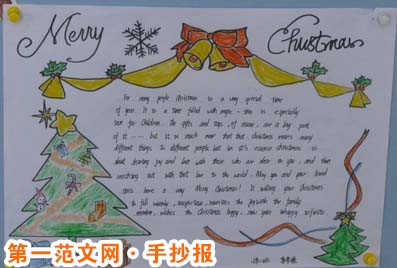 Merry Christmas
For many people Christmas is a very special time
of year. It is a time filled with magic - this is especially
true for Children. The gifts and toys, of course, are a big part
of it ...... but it is much more than that. Christmas means many
different things to different people but in it's essence christmas is
about sharing joy and love with those who are dear to you, and then
reaching out with that love to the world. May you and your loved
ones have a very Merry Christmas! It willing your Christmas
to fill warmly the joy with the family
wishes the Christmas happy, new year happy
第一范文网·手抄报